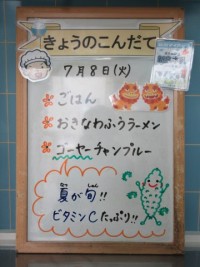 きょうのこんだて
7月8日(火)
ごはん
おきなわふうラーメン
ゴーヤーチャンプルー
夏が旬!!
ビタミンCたっぷり!!